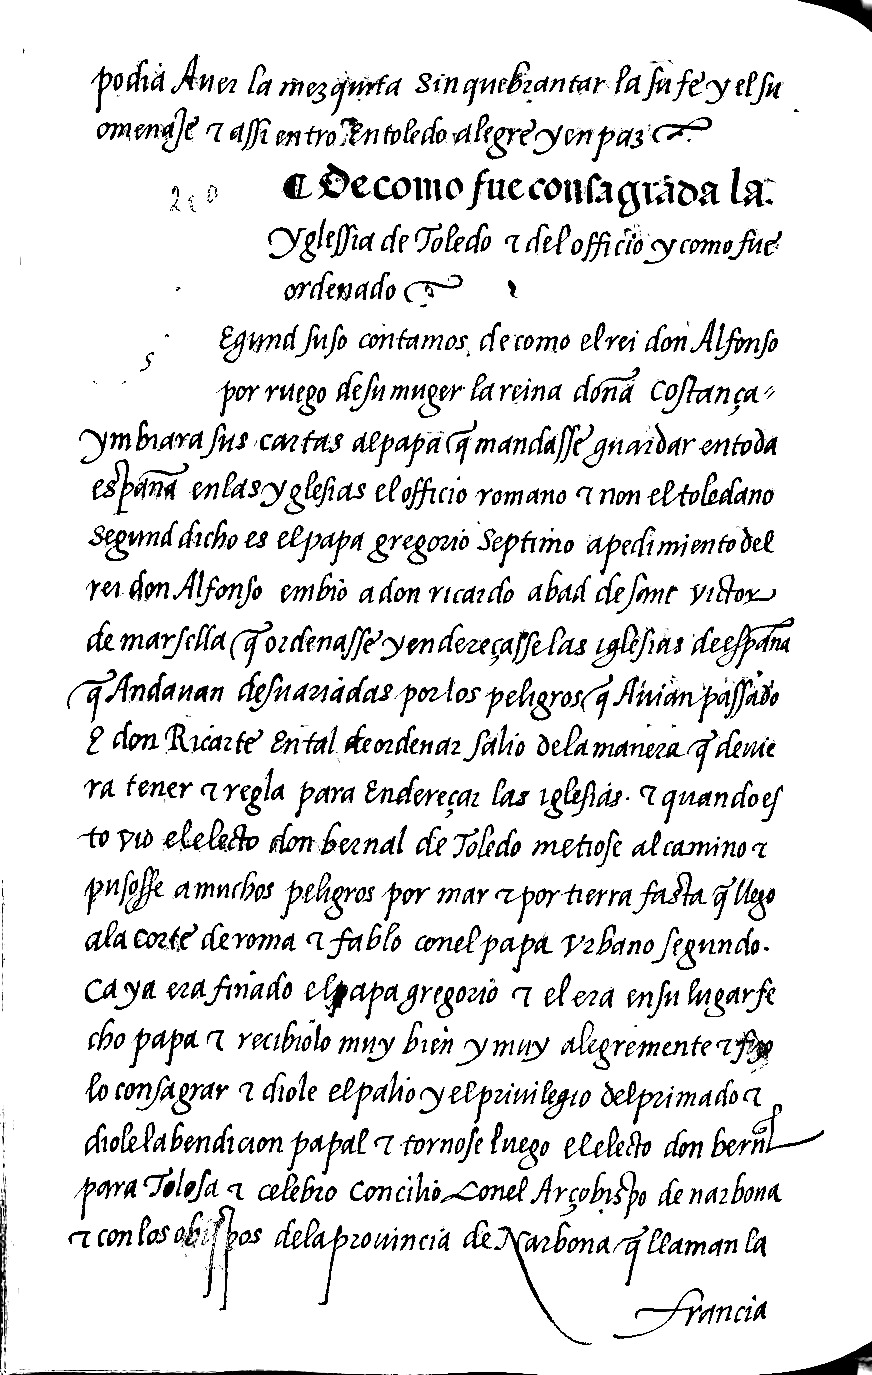 podia Auer la mezquita sin quebrantar la su fe y el su
omenaje τ assi entro En toledo alegre y en paz
¶ De como fue consagrada la.
Yglessia de Toledo τ del officio y como fue
ordenado
s Egund suso contamos de como el rei don Alfonso
por ruego de su muger la reina doña Costança
ymbiara sus cartas al papa q̃ mandasse guardar en toda
españa en las yglesias el officio romano τ non el toledano
segund dicho es el papa gregorio septimo a pedimiento del
rei don Alfonso embio a don ricardo abad de sant victor
de marsella q̃ ordenasse y endereçasse las iglesias de españa
q̃ Andauan desuariadas por los peligros q̃ Auian passado
E don Ricarte En tal de ordenar salio de la manera q̃ deuie
ra tener τ regla para Endereçar las iglesias. τ quando es
to vio el electo don bernal de Toledo metiose al camino τ
pusosse a muchos peligros por mar τ por tierra fasta q̃ llego
a la corte de roma τ fablo con el papa vrbano segundo.
Ca ya era finado el papa gregorio τ el era en su lugar fe
cho papa τ recibiolo muy bien y muy alegremente τ fizo
lo consagrar τ diole el palio y el privilegio del primado τ
diole la bendicion papal τ tornose luego el electo don bernal
para Tolosa τ celebro Concilio Con el Arçobispo de narbona
τ con los obispos de la prouincia de Narbona q̃ llaman la
francia